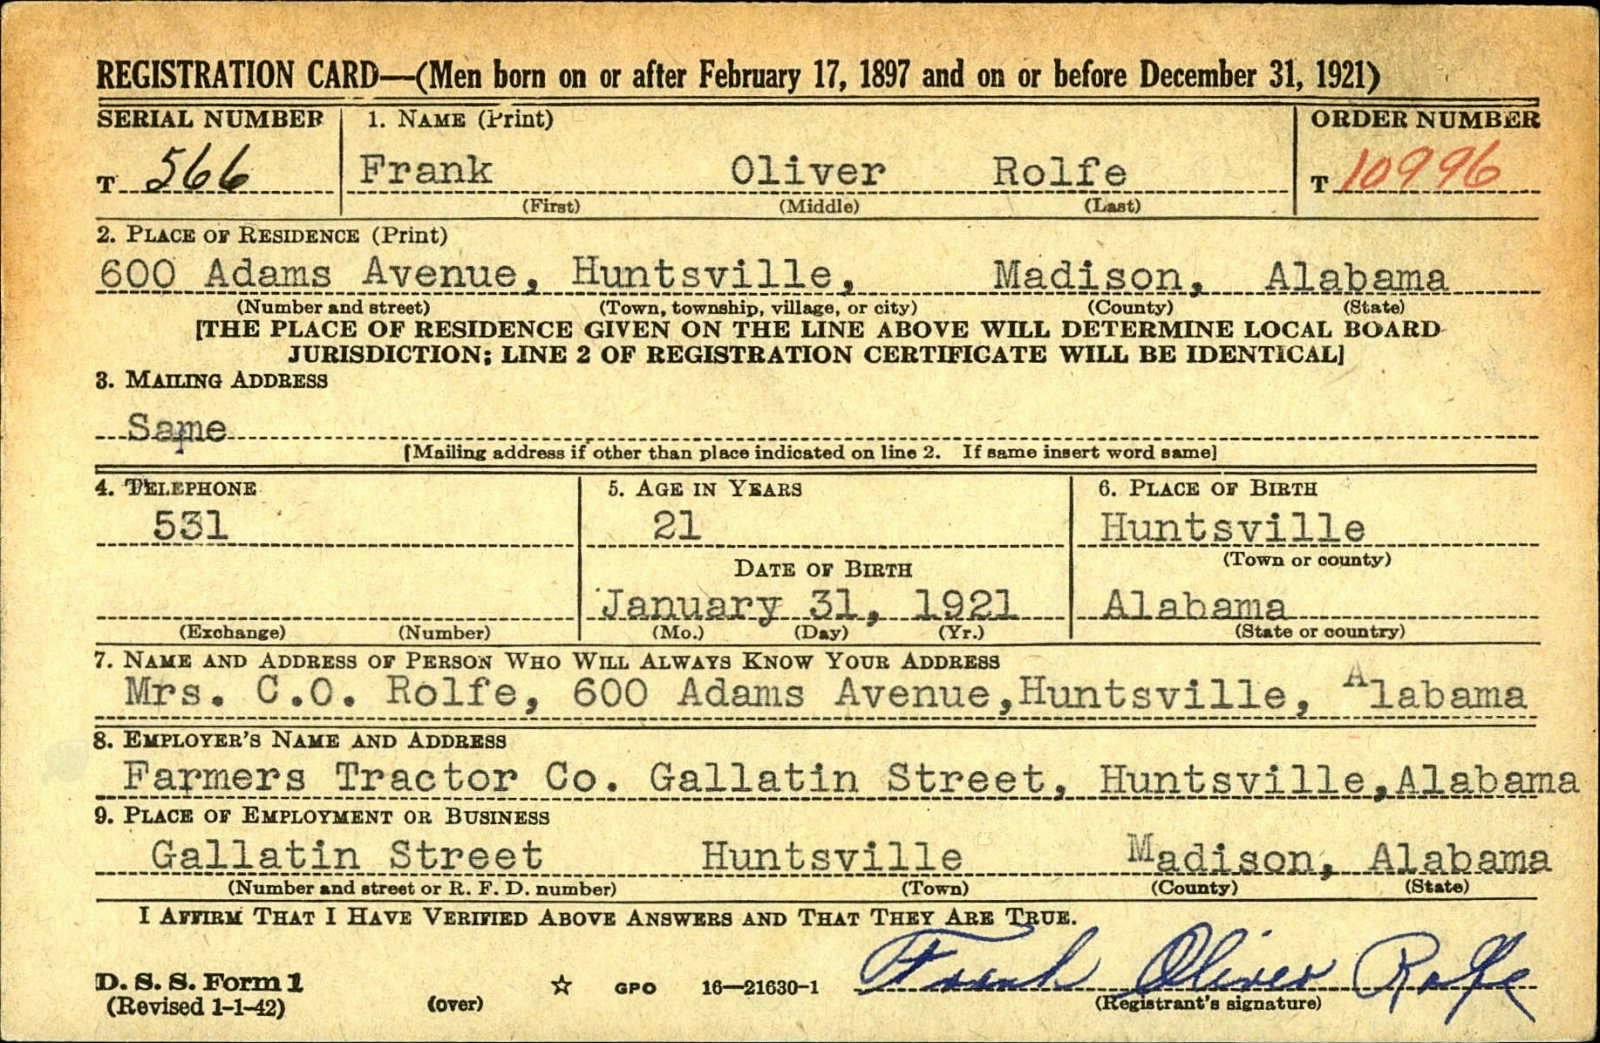 REGISTRATION CARD—(Men born on or after February 17, 1897 and on or before December 31, 1921)
SERIAL NUMBER 1. NAME (Print) ORDER NUMBER
T 566 Frank Oliver Rolfe T 10996
(First) (Middle) (Last)
2. PLACE OF RESIDENCE (Print)
600 Adams Avenue, Huntsville, Madison, Alabama
(Number and street) (Town, township, village, or city) (County) (State)
[THE PLACE OF RESIDENCE GIVEN ON THE LINE ABOVE WILL DETERMINE LOCAL BOARD
JURISDICTION; LINE 2 OF REGISTRATION CERTIFICATE WILL BE IDENTICAL]
3. MAILING ADDRESS
Same
[Mailing address if other than place indicated on line 2. If same insert word same]
4. TELEPHONE 5. AGE IN YEARS 6. PLACE OF BIRTH
531 21 Huntsville
(Town or county)
DATE OF BIRTH
January 31, 1921 Alabama
(Exchange) (Number) (Mo.) (Day) (Yr.) (State or country)
7. NAME AND ADDRESS OF PERSON WHO WILL ALWAYS KNOW YOUR ADDRESS
Mrs. C.O. Rolfe, 600 Adams Avenue,Huntsville, Alabama
8. EMPLOYER'S NAME AND ADDRESS
Farmers Tractor Co. Gallatin Street, Huntsville,Alabama
9. PLACE OF EMPLOYMENT OR BUSINESS
Gallatin Street Huntsville Madison, Alabama
(Number and street or R. F. D. number) (Town) (County) (State)
I AFFIRM THAT I HAVE VERIFIED ABOVE ANSWERS AND THAT THEY ARE TRUE.
Frank Oliver Rolfe
D. S. S. Form 1 ☆ GPO 16—21630-1
(Revised 1-1-42) (over) (Registrant's signature)